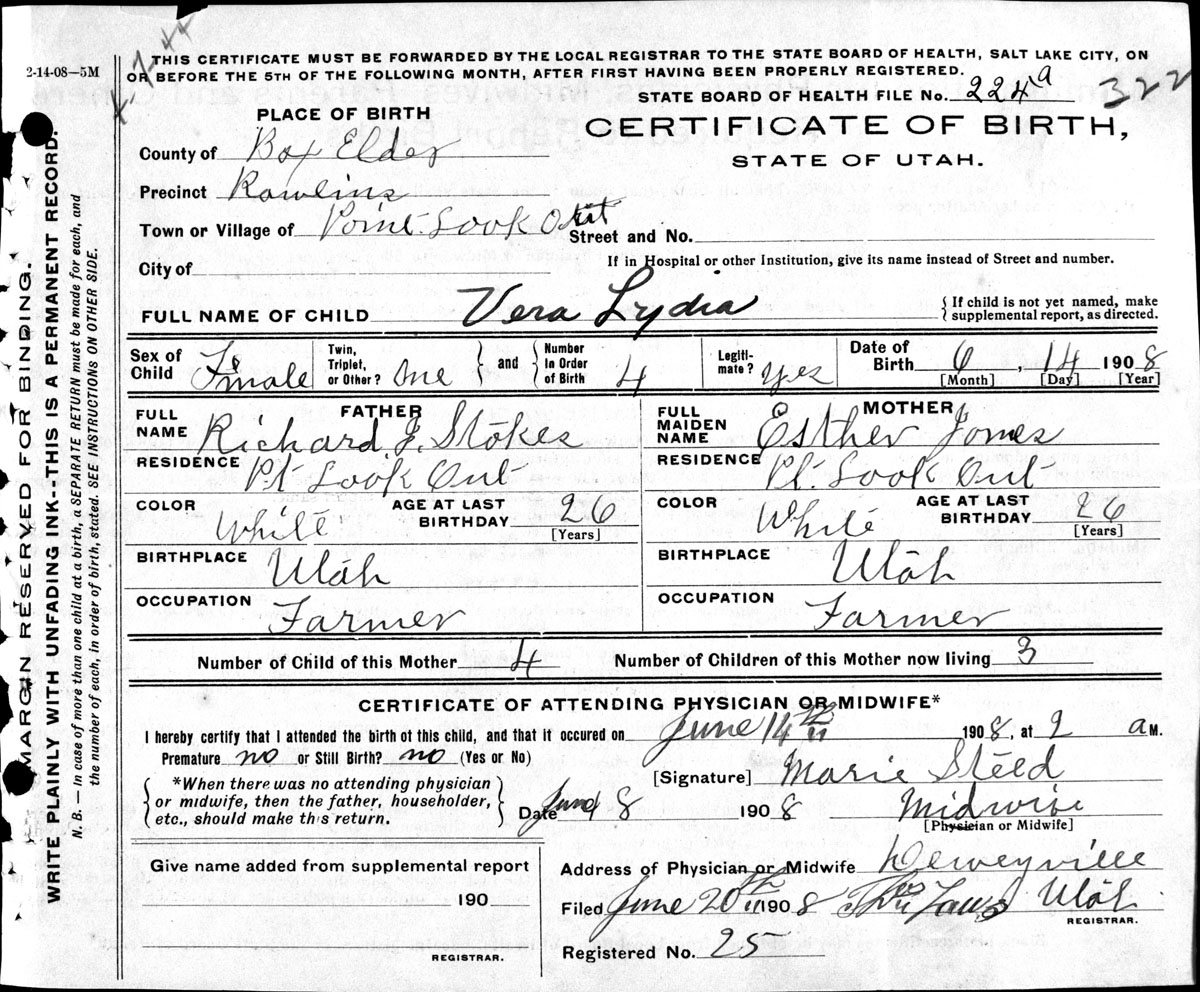 2-14-08—5M
THIS CERTIFICATE MUST BE FORWARDED BY THE LOCAL REGISTRAR TO THE STATE BOARD OF HEALTH, SALT LAKE CITY, ON
OR BEFORE THE 5TH OF THE FOLLOWING MONTH, AFTER FIRST HAVING BEEN PROPERLY REGISTERED.
STATE BOARD OF HEALTH FILE No. 224a 322
MARGIN RESERVED FOR BINDING.
WRITE PLAINLY WITH UNFADING INK--THIS IS A PERMANENT RECORD.
N. B. — In case of more than one child at a birth, a SEPARATE RETURN must be made for each, and
the number of each, in order of birth, stated. SEE INSTRUCTIONS ON OTHER SIDE.
PLACE OF BIRTH
CERTIFICATE OF BIRTH,
STATE OF UTAH.
County of Box Elder
Precinct Rawlins
Town or Village of Point Look Out Street and No.
City of
If in Hospital or other Institution, give its name instead of Street and number.
FULL NAME OF CHILD Vera Lydia { If child is not yet named, make
supplemental report, as directed.
Sex of Child Female Twin, Triplet, or Other? One and Number In Order of Birth 4 Legiti- mate? yes Date of Birth 6, 14 1908
[Month] [Day] [Year]
FATHER
FULL NAME Richard J. Stokes
RESIDENCE Pt Look Out
COLOR White AGE AT LAST BIRTHDAY 26 [Years]
BIRTHPLACE Utah
OCCUPATION Farmer
MOTHER
FULL MAIDEN NAME Esther Jones
RESIDENCE Pt. Look Out
COLOR White AGE AT LAST BIRTHDAY 26 [Years]
BIRTHPLACE Utah
OCCUPATION Farmer
Number of Child of this Mother 4 Number of Children of this Mother now living 3
CERTIFICATE OF ATTENDING PHYSICIAN OR MIDWIFE*
I hereby certify that I attended the birth of this child, and that it occured on June 14th 1908, at 2 a M.
Premature no or Still Birth? no (Yes or No)
*When there was no attending physician
or midwife, then the father, householder,
etc., should make this return.
[Signature] Marie Steed
Date June 18 1908 Midwife
[Physician or Midwife]
Give name added from supplemental report
190
REGISTRAR.
Address of Physician or Midwife Deweyville
Utah
Filed June 20th 1908
REGISTRAR.
Registered No. 25